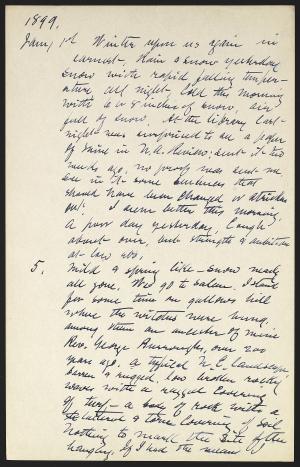 1899.
Jany 1st Winter upon us again in
earnest. Rain & snow yesterday
snow with rapid falling temper-
ature all night. Cold this morning
with 6 or 8 inches of snow. Air
full of snow. At the library last
night was surprised to see a paper
of mine in N.A. Review; sent it two
weeks ago; no proof was sent me.
see in it some sentences that
should have been changed or stricken
out. I seem better this morning
A poor day yesterday. Cough
about over, but strength & ambition
at low ebb.
5. Mild & spring like - snow nearly
all gone. Wed go to Salem. I stand
for some time on gallows hill
where the witches were hung,
among them an ancestor of mine
Rev. George Burroughs, over 200
years ago. A typical N.E. landscape
barren & rugged, low broken rocky
waves with a ragged covering
of turf - a body of rock with a
tattered & torn covering of soil
Nothing to mark the site of the
hanging. If I had the means